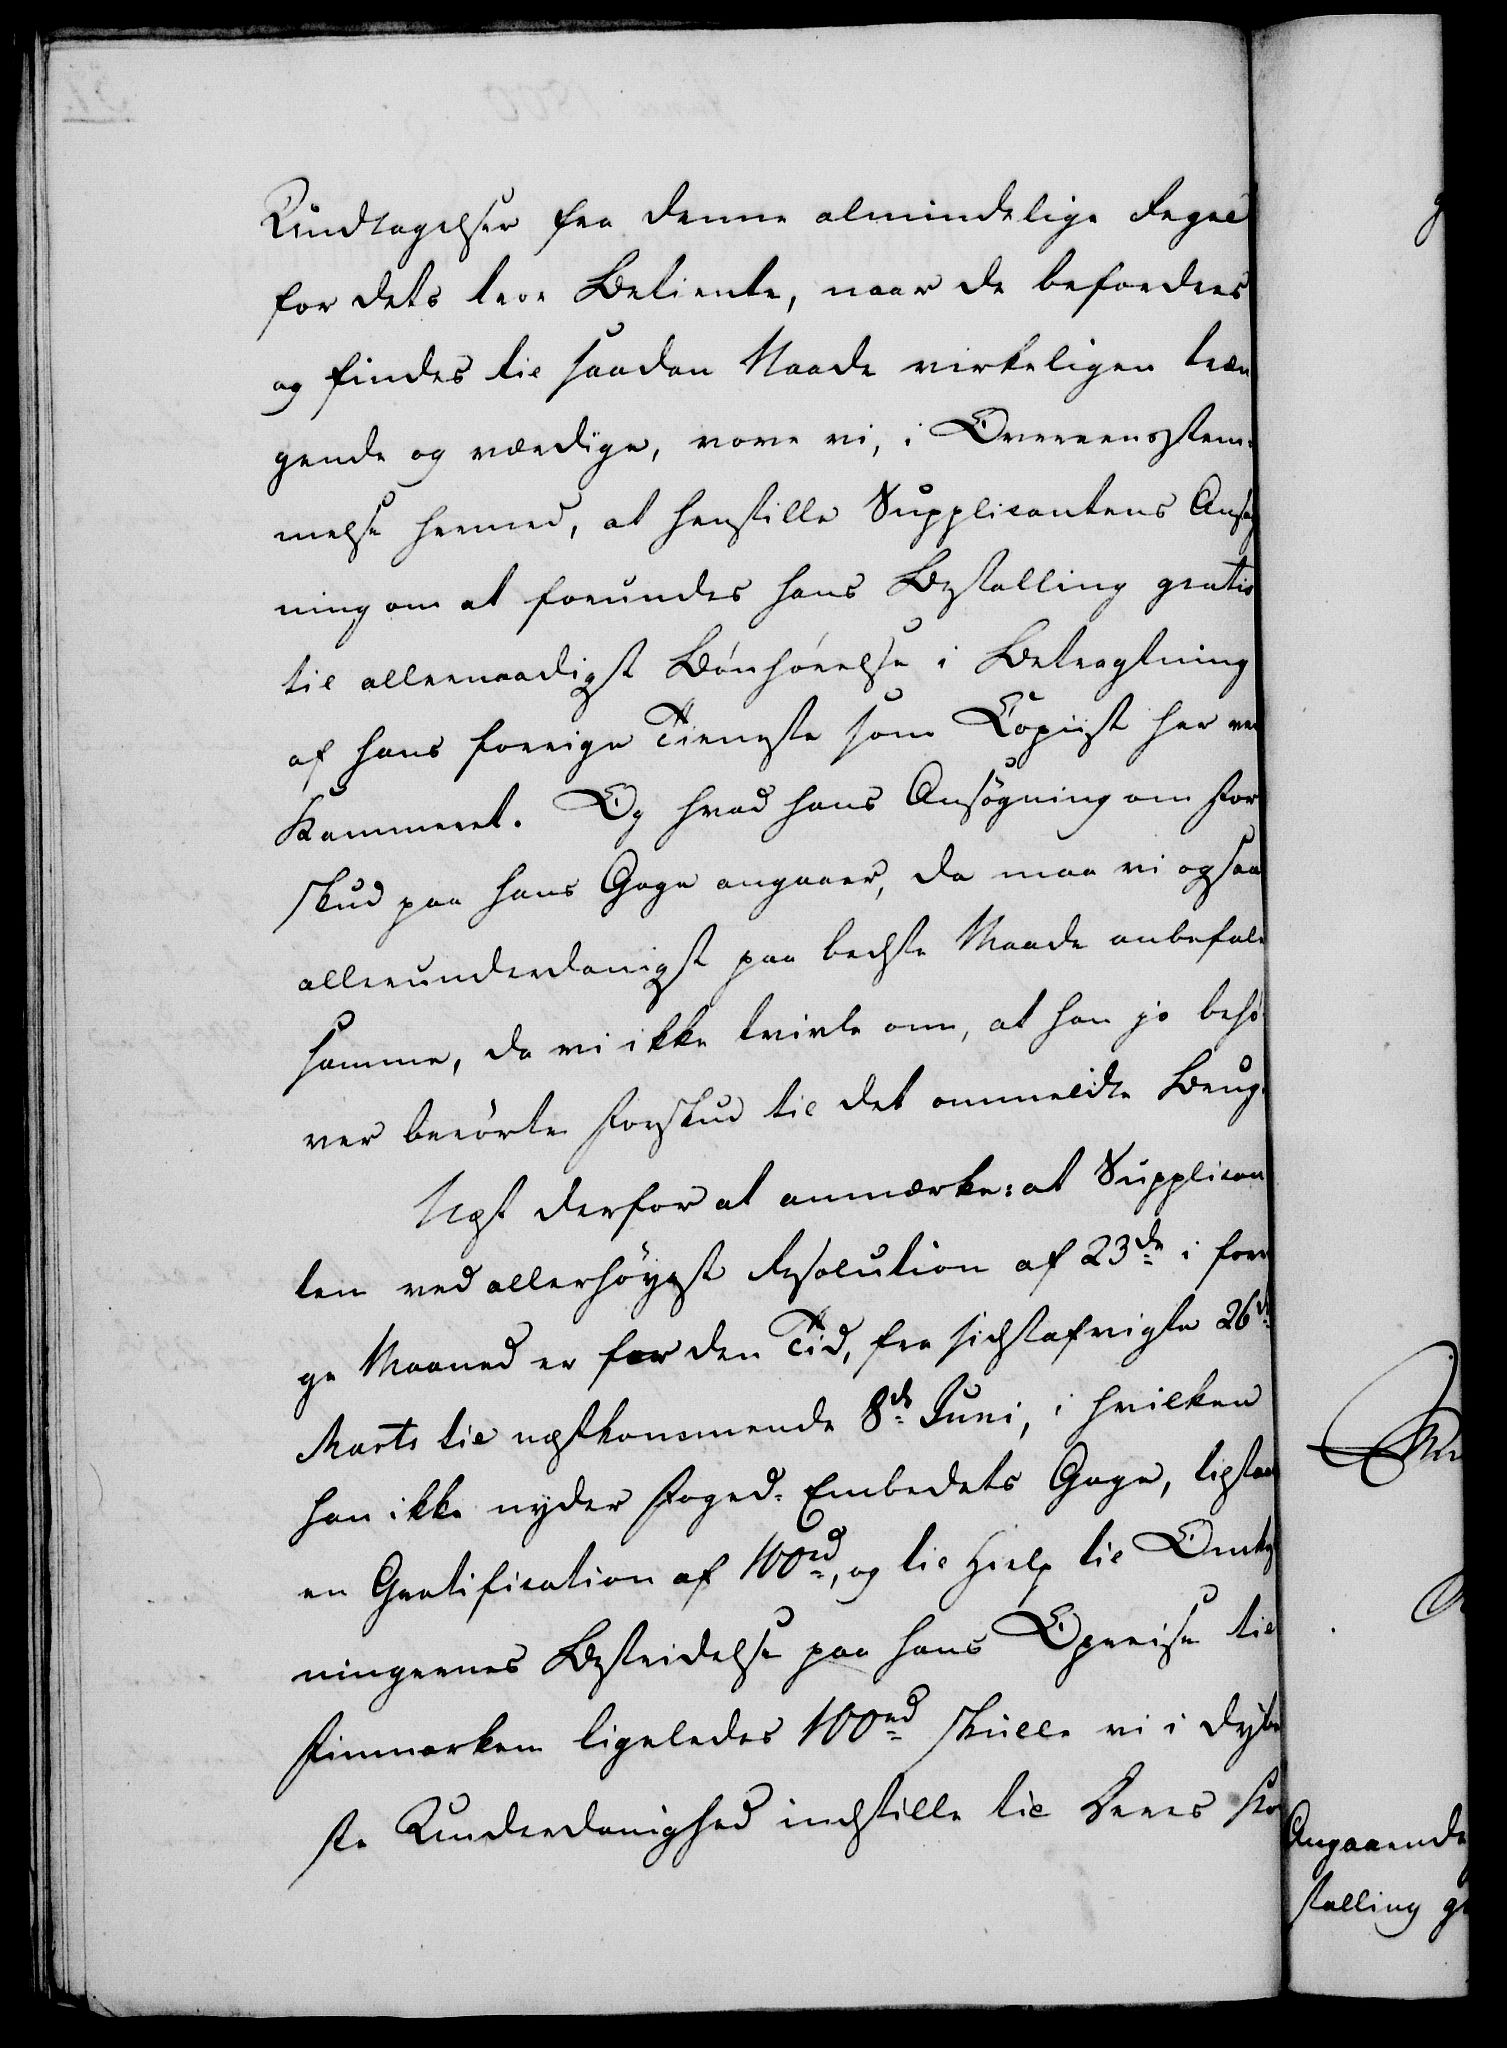 Undtagelser fra denne almindelige Regel
for dets troe Betiente, naar de befordres
og findes til saadan Naade virkeligen træn
gende og værdige, vove vi, i Overeensstem-
melse hermed, at henstille Supplicantens Ansøg
ning om at forundes hans Bestalling gratis
til allernaadigst Bønhørelse i Betragtning
af hans forrige Tieneste som Copiist her ved
Kammeret. Og hvad hans Ansøgning om For
skud paa hans Gage angaaer, da maa vi ogsaa
allerunderdanigst paa bedste Maade anbefale
samme, da vi ikke tvivle om, at han jo behø-
ver berørte Forskud til det ommeldte Brug.
Næst derfor at anmærke: at Supplican
ten ved allerhøyest Resolution af 23de i forri
ge Maaned er for den Tid, fra sidstafvigte 26de
Marts til næstkommende 8de Juni, i hvilken
han ikke nyder Foged-Embedets Gage, tilstaaet
en Gratification af 100rd, og til Hielp til Omkost
ningernes Bestridelse paa hans Opreise til
Finmarken ligeledes 100rd skulle vi i dybe
ste Underdanighed indstille til Deres Kon
Angaaende
stalling gr